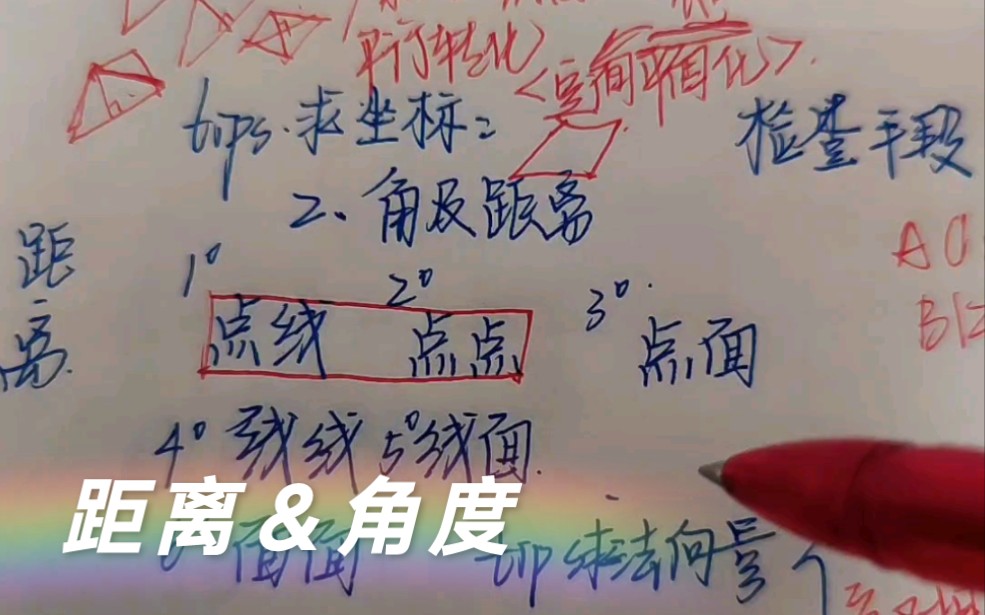 平行转化
<空间平面化>
tips.求坐标:
检查手段
2、角及距离
距离
1° 2° 3°
点线 点点 点面
4° 线线 5°线面
距离&角度
面面 tip 求法向量